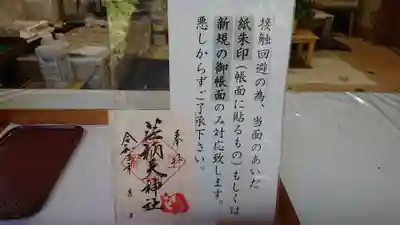 接触回避の為、当面のあいだ
紙朱印（帳面に貼るもの）もしくは
新規の御帳面のみ対応致します。
悪しからずご了承下さい。
奉拝
荏柄天神社
令和 年 月 日